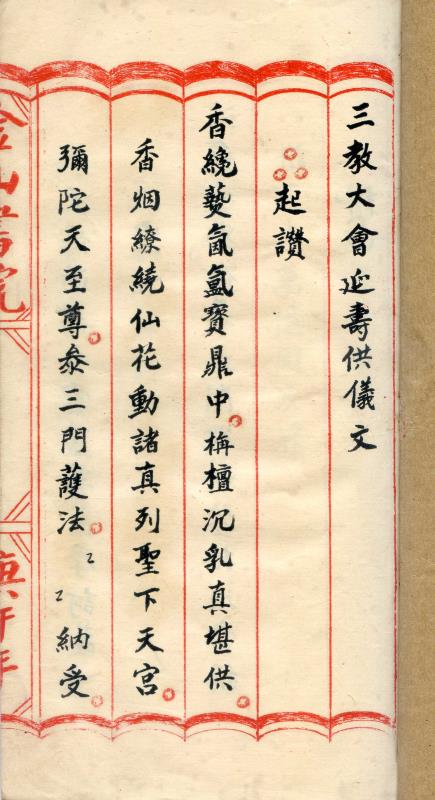 三教大會延壽供儀文
起讚
香纔爇氤氳寶鼎中栴檀沉乳真堪供
香烟繚繞仙花動諸真列聖下天宮
彌陀天至尊叅三門護法〻〻納受
金山書院
庚午年